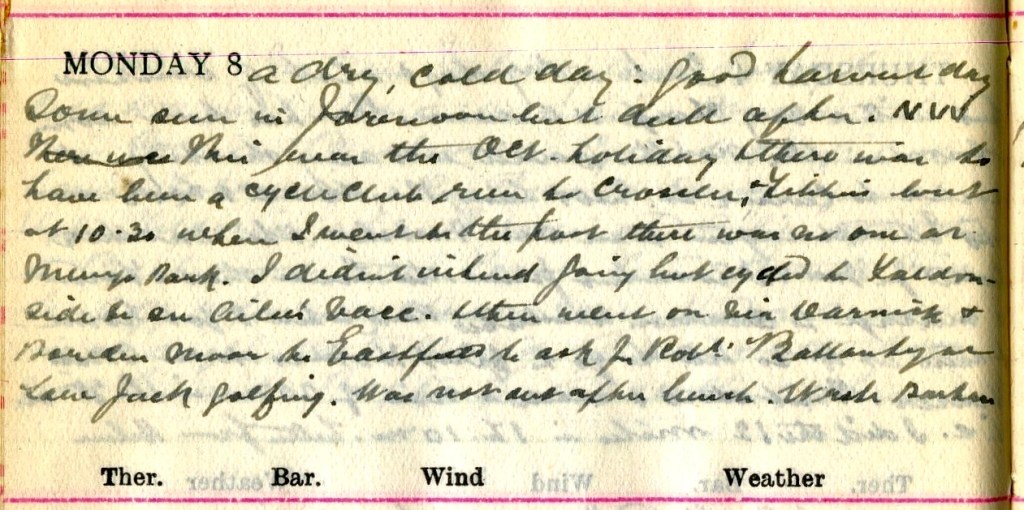 MONDAY 8 a dry, cold day: good harvest day
Some sun in forenoon but dull after. NW
There was This was the Oct. holiday & there was to
have been a cycle club run to but
at 10.30 when I went to the post there was no one at
Bank. I didn't intend going but cycled to
side to see race. I then went on via Darnick &
Bowden Moor to to ask for Robt. Ballantyne
Saw Jack golfing. Was not out after lunch. Wrote
Ther. Bar. Wind Weather